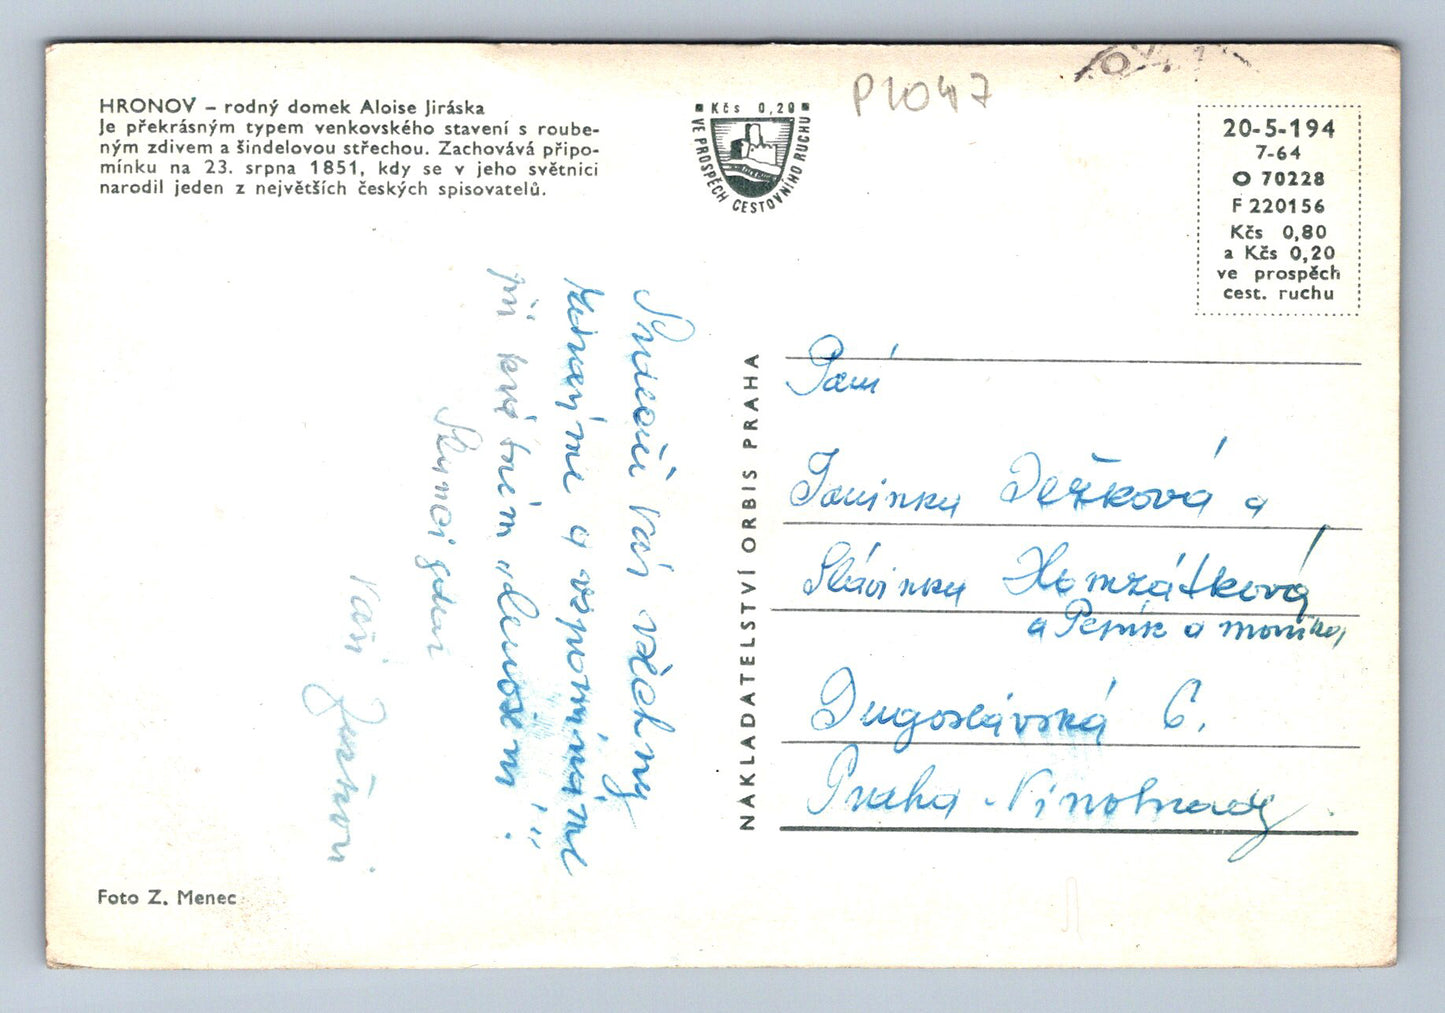 HRONOV – rodný domek Aloise Jiráska
Je překrásným typem venkovského stavení s roube-
ným zdivem a šindelovou střechou. Zachovává připo-
mínku na 23. srpna 1851, kdy se v jeho světnici
narodil jeden z největších českých spisovatelů.
Kčs 0,20
VE PROSPĚCH CESTOVNÍHO RUCHU
P1047
20-5-194
7-64
O 70228
F 220156
Kčs 0,80
a Kčs 0,20
ve prospěch
cest. ruchu
Srdečně Vás všechny
a vzpomínáme
při

Vaši
NAKLADATELSTVÍ ORBIS PRAHA
Paní
Ježková a
Slávinka
a Pepík a Monika
Jugoslávská 6.
Praha - Vinohrady
Foto Z. Menec